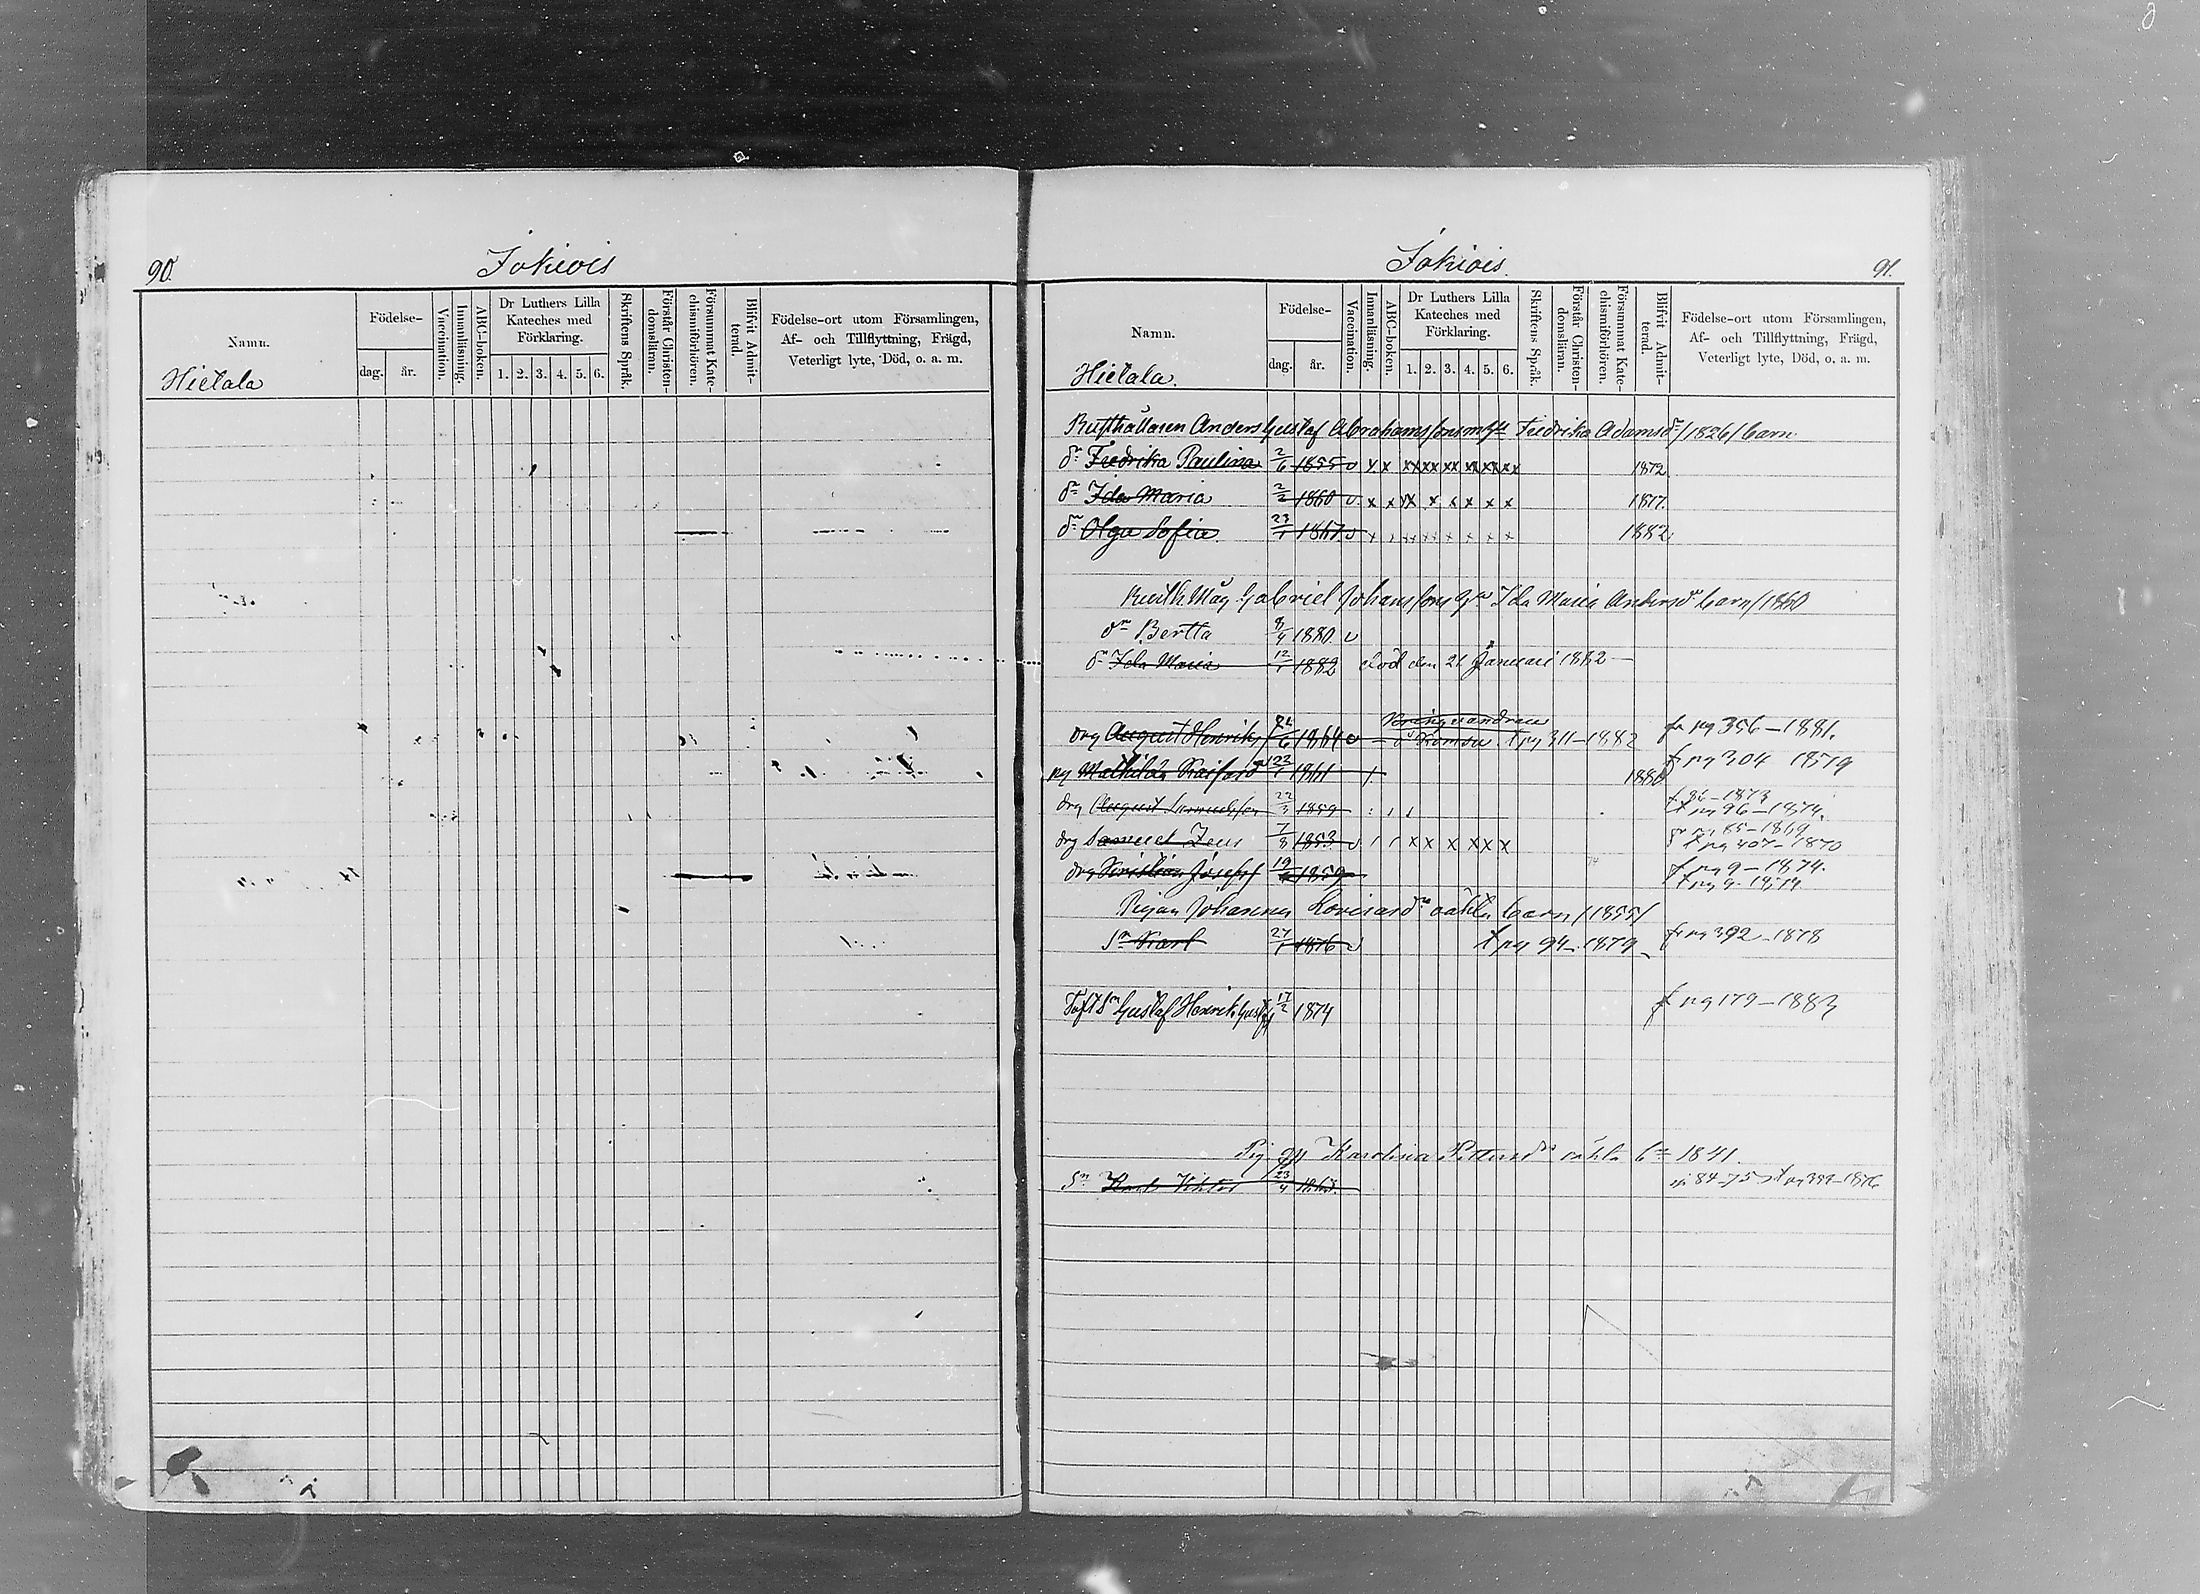 90.
Jokiois
Namn.
Hietala
Födelse-
dag.
år.
Vaccination.
Innanläsning.
ABC-boken.
Dr Luthers Lilla
Kateches med
Förklaring.
1. 2. 3. 4. 5. 6.
Skriftens Språk.
Förstår Christen-
domsläran.
Försummat Kate-
chismiförhören.
Blifvit Admit-
terad.
Födelse-ort utom Församlingen,
Af- och Tillflyttning, Frägd,
Veterligt lyte, Död, o. a. m.
Jokiois.
91.
Namn.
Hietala.
Födelse-
dag.
år.
Vaccination.
Innanläsning.
ABC-boken.
Dr Luthers Lilla
Kateches med
Förklaring.
1. 2. 3. 4. 5. 6.
Skriftens Språk.
Förstår Christen-
domsläran.
Försummat Kate-
chismiförhören.
Blifvit Admit-
terad.
Födelse-ort utom Församlingen,
Af- och Tillflyttning, Frägd,
Veterligt lyte, Död, o. a. m.
Rusthållaren Anders Gustaf Abrahamssons Fredrika Adamsdr /1826/ barn
dr Fredrika Paulina 2/6 1855 v x x xx xx xx xx xx xx 1872
dr Ida Maria 2/2 1860 v x x xx x x x x x 1877.
dr Olga Sofia 23/1 1867 v x x x x x x 1882
Gabriel Johanssons Ida Maria Andersdr barn /1860
dr Bertta 8/4 1880. v
dr Ida Maria 12/1 1882 död den 21 Januari 1882
drg August Henriks 6 1864 v t pg 311-1882 fr pg 356-1881.
pg Mathilda 23/1 1861 1880 f pg 304 1879
drg August 22/3 1859 1873
t pg 96-1874.
drg Samuel Zeus 7/8 1853 v x x x x x x fr pg 85-1869
t pg 407-1870
drg Kristian Josef 19 1859 f pg 9-1874.
t pg 9
Pigan Johanna oäkta barn /1855/
Sn Karl 27/1 1876 v t pg 94-1879 fr pg 392-1878
Gustaf Henrik 17/2 1874 f pg 179-1883
Pig Karolina oäkta bn 1841.
Sn Karl Viktor 23/4 84-75 t pg 399-1876